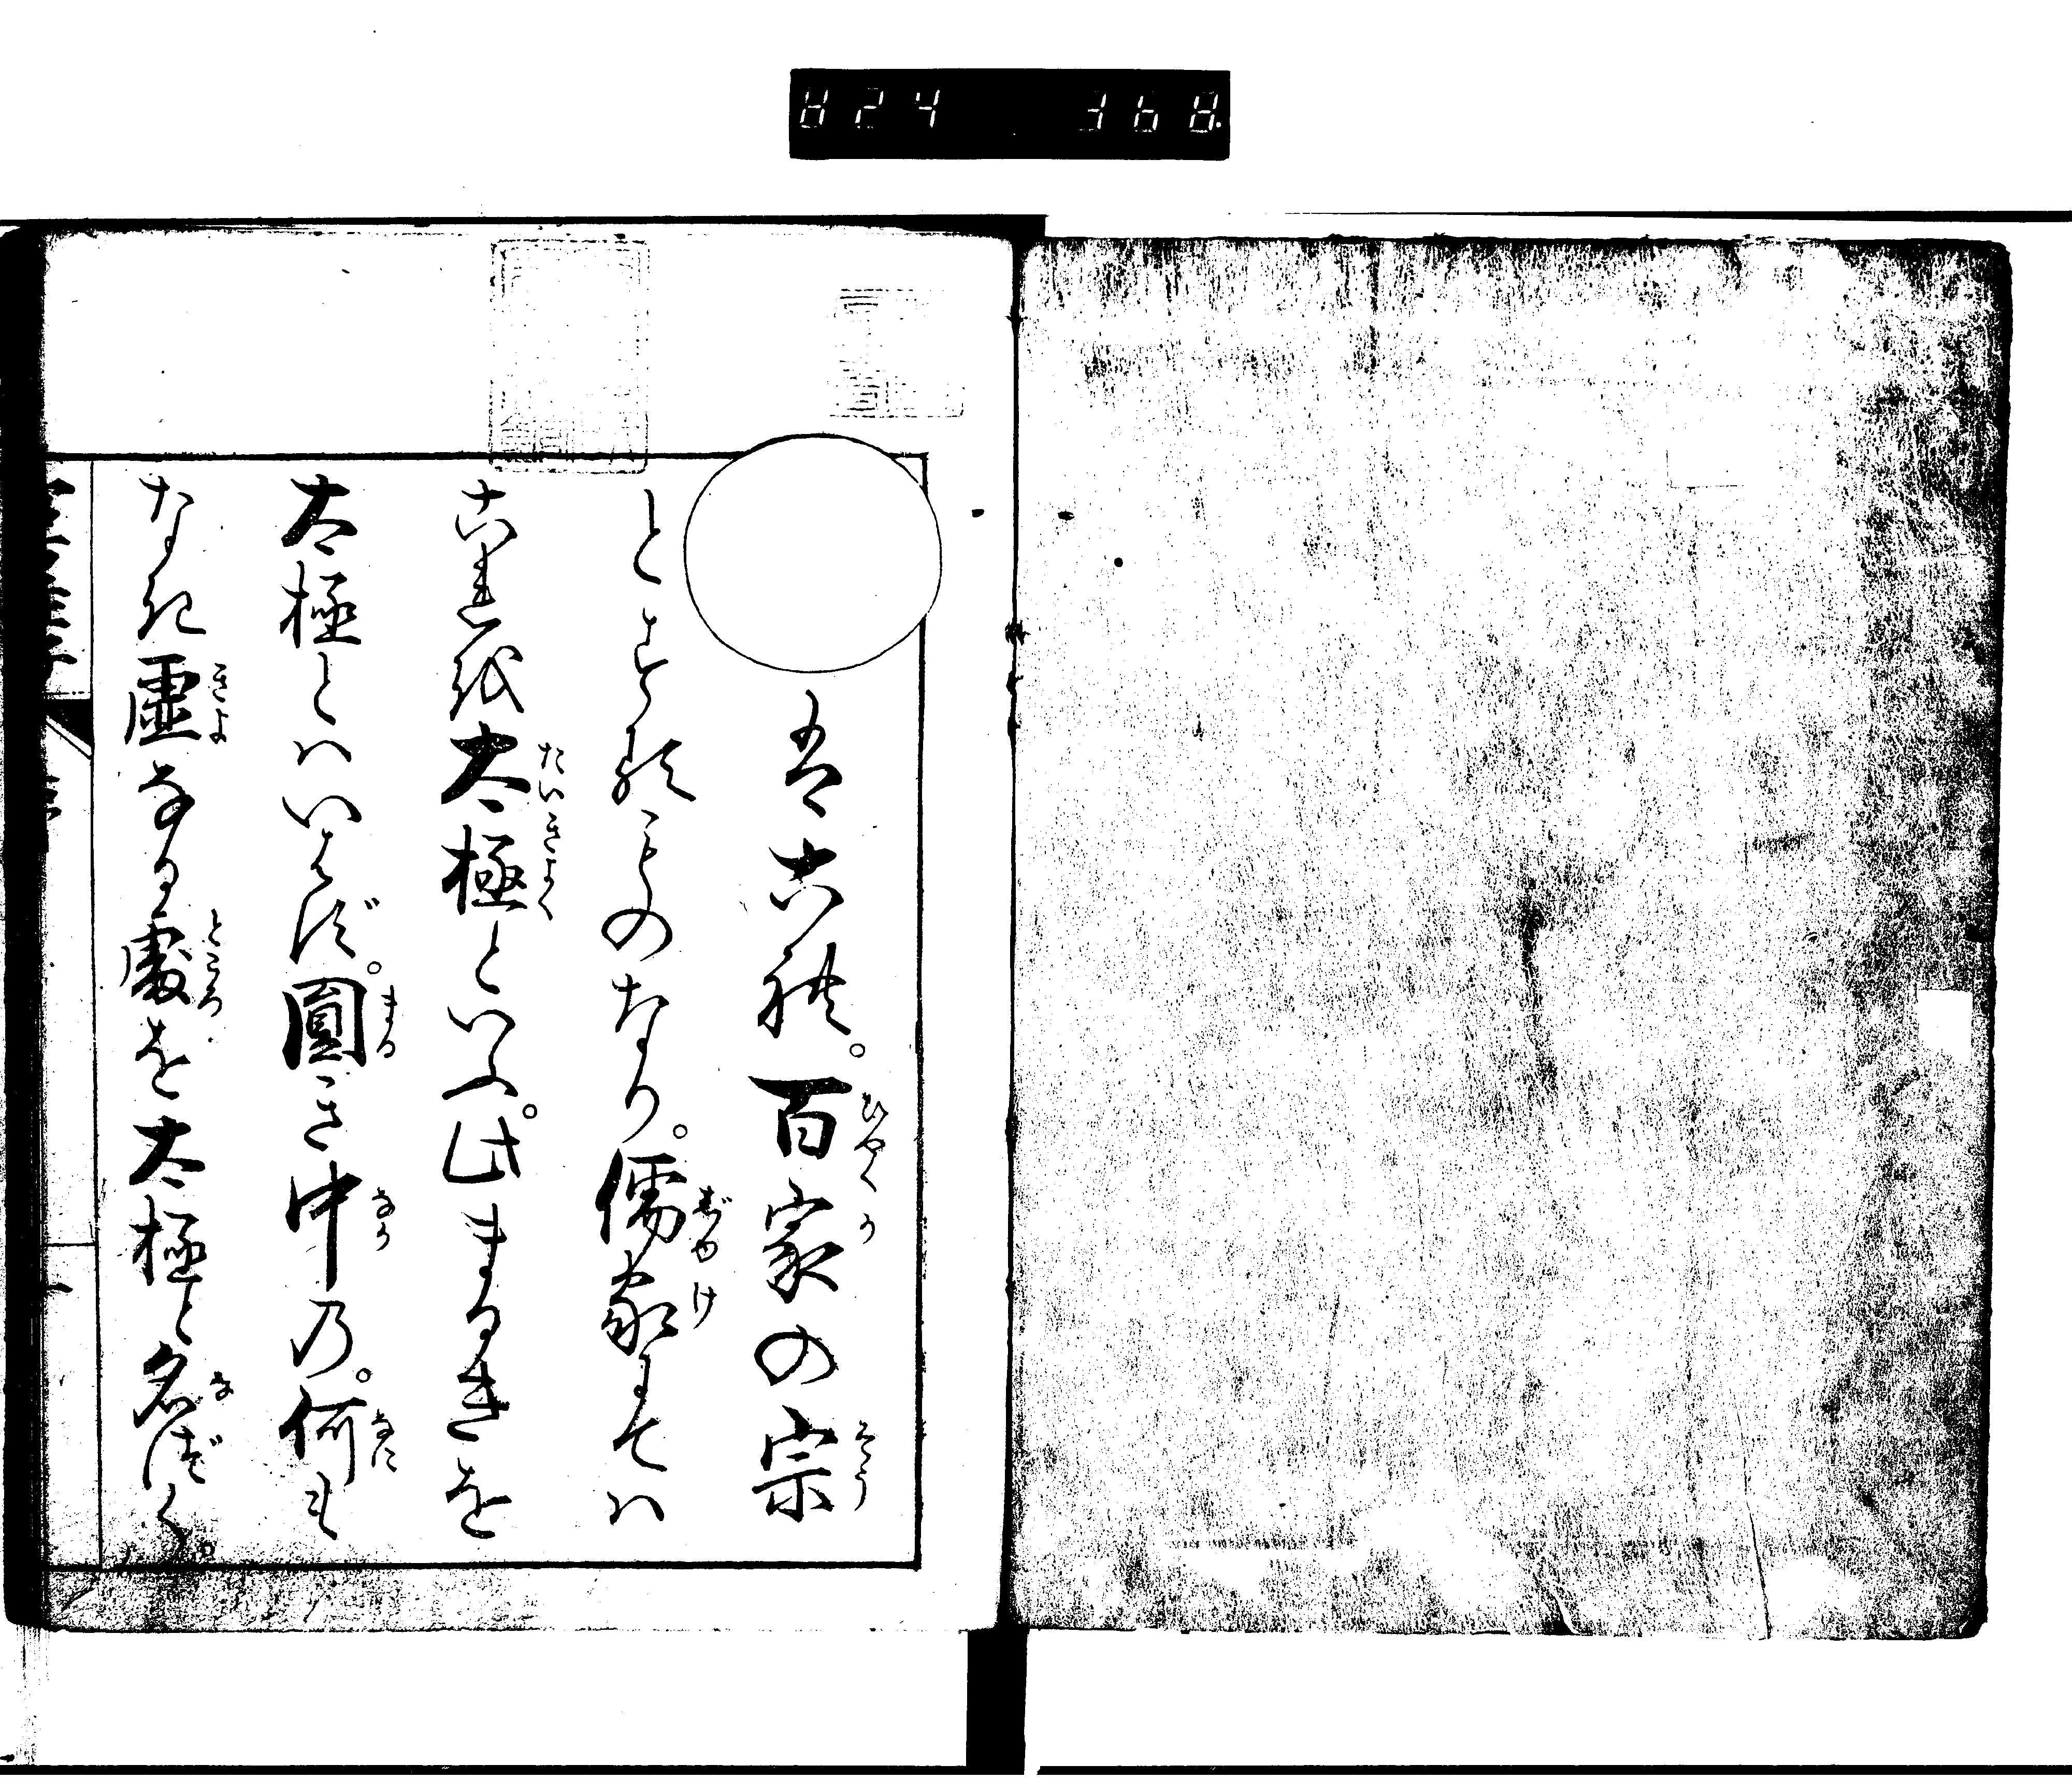 824 368
○是これ。百家の宗
とする所のものなり。儒家にてハ
これを太極といふ。此まるきを
太極とハいはず。圓き中乃。何も
なき虚なる處を太極と名づく。